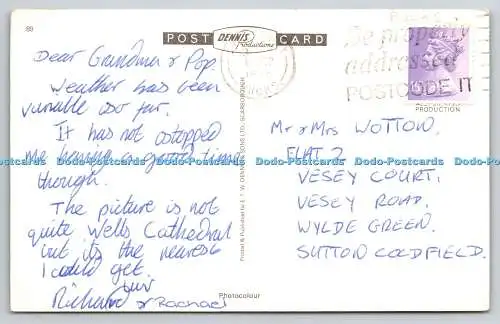 89
POST DENNIS Productions CARD
Be properly
addressed
POSTCODE IT
PRODUCTION
Dear Grandma & Pop,
Weather has been
variable so far.
It has not stopped
me having a good time
though.
The picture is not
quite Wells Cathedral
but its the nearest
I could get.
luv
Richard & Rachael
Photocolour
Printed & Published by E. T. W. DENNIS & SONS LTD., SCARBOROUGH
Mr & Mrs WOTTON,
FLAT 2
VESEY COURT,
VESEY ROAD,
WYLDE GREEN.
SUTTON COLDFIELD.
Dodo-Postcards Dodo-Postcards Dodo-Postcards Dodo-Postcards Dodo-Postcards Dodo-Postcards